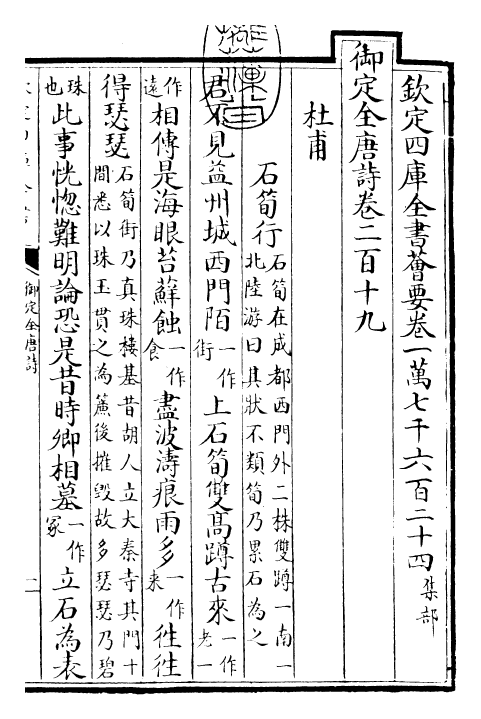 欽定四庫全書薈要卷一萬七千六百二十四集部
御定全唐詩卷二百十九
杜甫
石筍行石筍在成都西門外二株雙蹲一南一
北陸游曰其狀不類筍乃累石為之
君不見益州城西門陌一作
街上石筍雙高蹲古來一作
老一
作
遠相傳是海眼苔蘚蝕一作
食盡波濤痕雨多一作
來徃徃
得瑟瑟石筍街乃真珠樓基昔胡人立大秦寺其門十
間悉以珠玉貫之為簾後摧毀故多瑟瑟乃碧
珠
也此事恍惚難明論恐是昔時卿相墓一作
冢立石為表
御定全唐詩
一